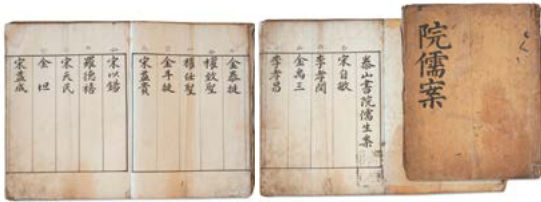 院儒案
泰山書院儒生案
宋自敏
李孝閔
金禹三
李孝昌
金泰挺
權致聖
權任聖
金斗挺
宋益賚
宋以鎔
羅德禧
宋天民
金坦
宋益成